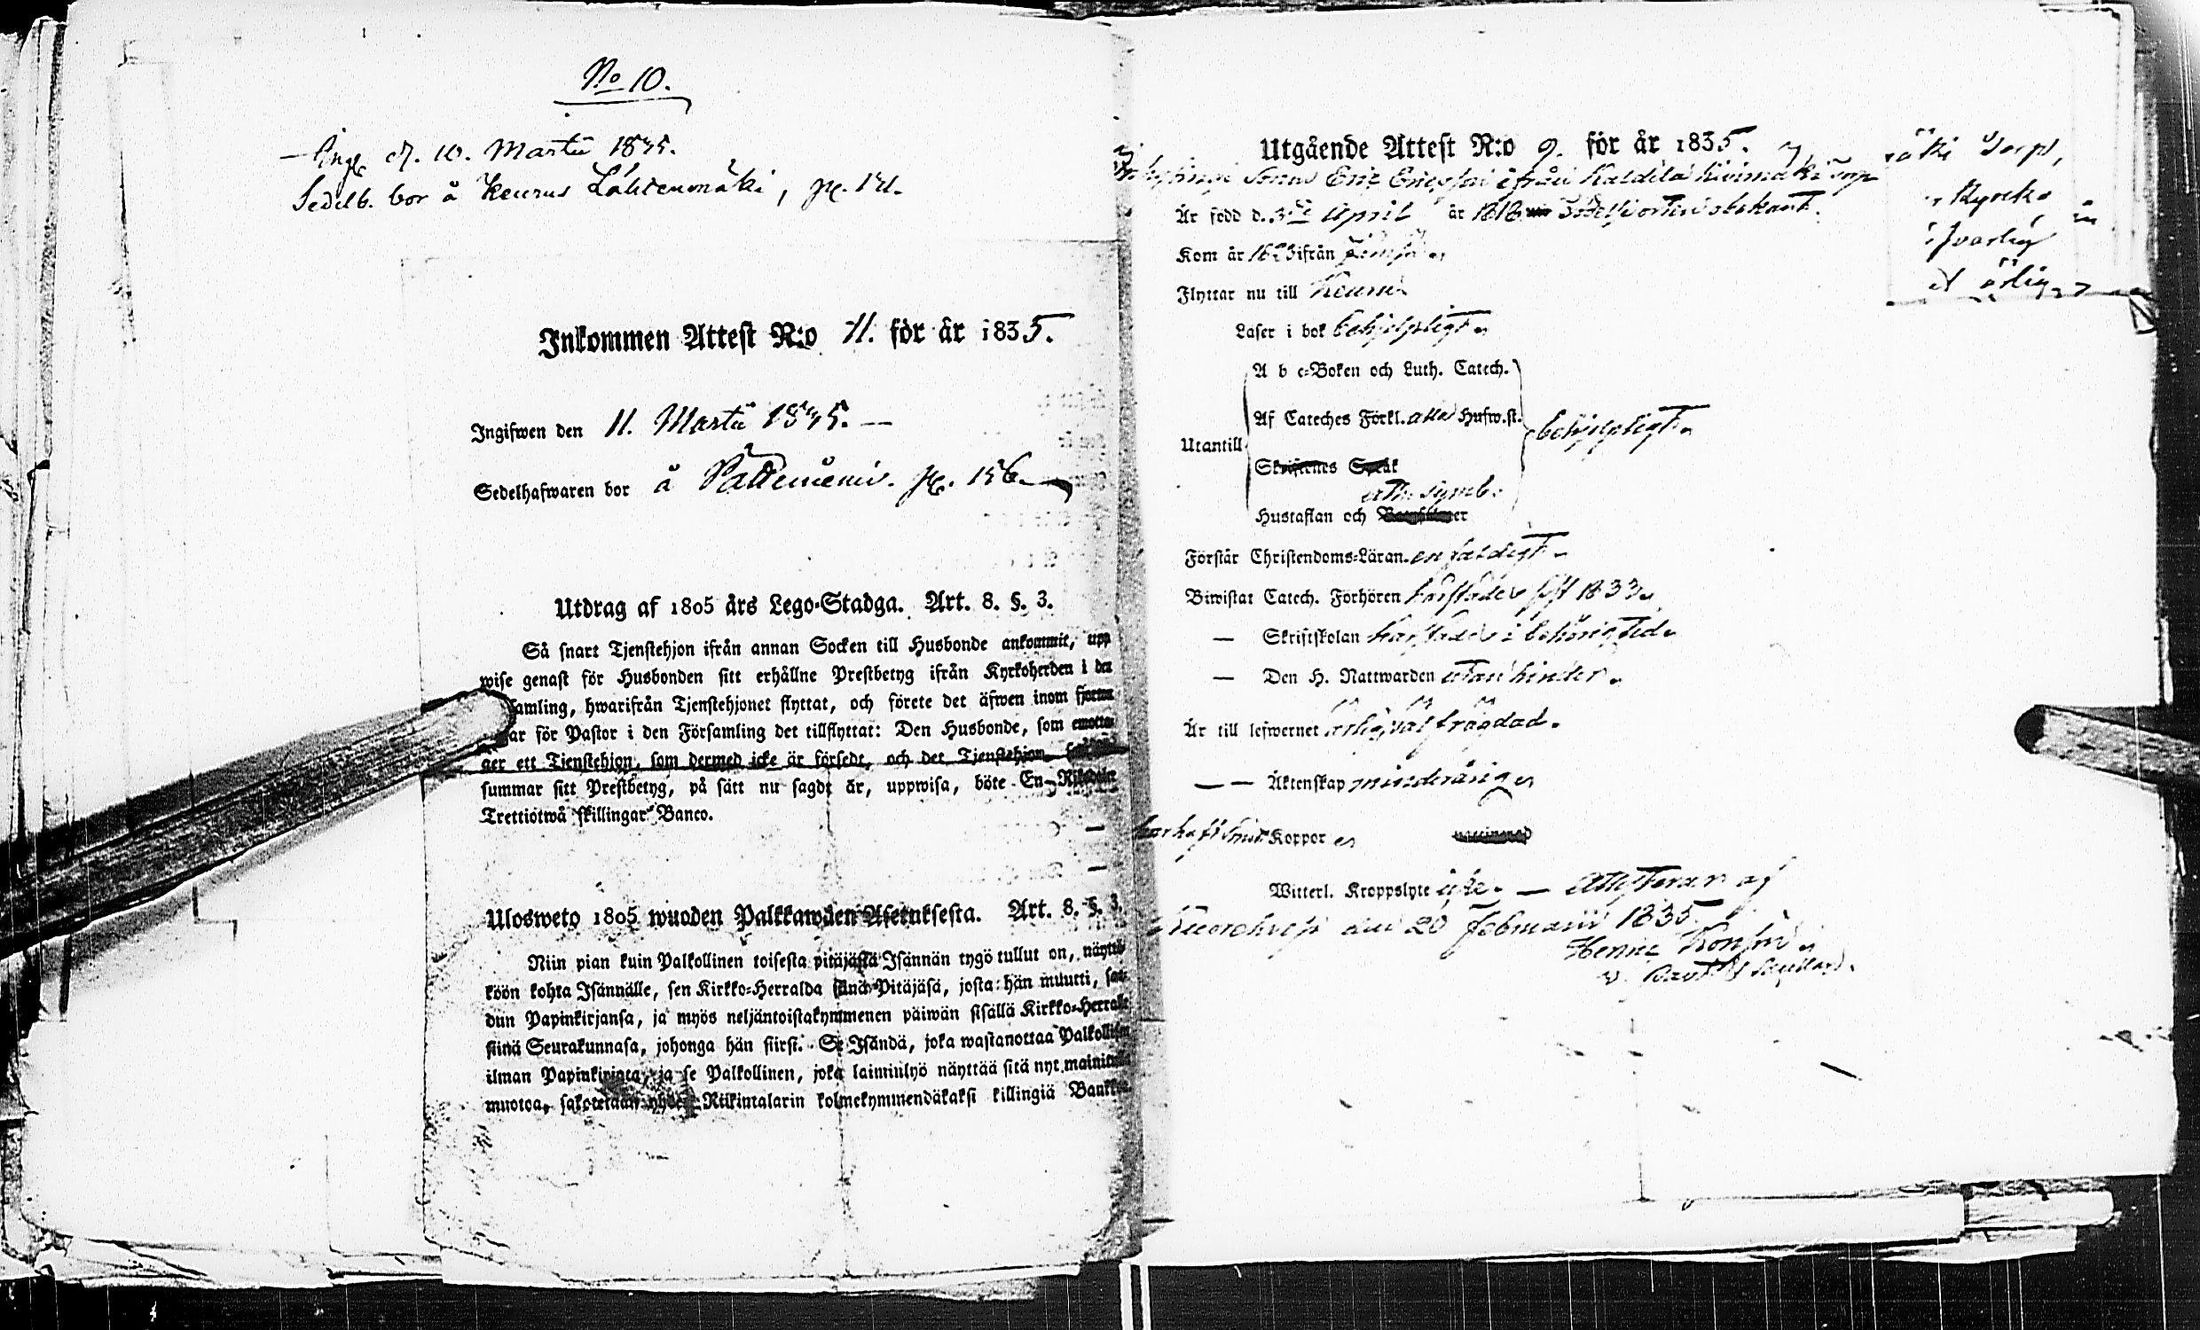 No 10.
d. 10. Martii 1835.
Sedelh. bor å Keurus Lahdenmäki, pg.
Inkommen Attest N:o 11. för år 1835.
Ingifwen den 11. Martii 1835.
Sedelhafwaren bor å pg. 156.
Utdrag af 1805 års Lego-Stadga. Art. 8. §. 3.
Så snart Tjenstehjon ifrån annan Socken till Husbonde ankommit, upp
wise genast för Husbonden sitt erhållne Prestbetyg ifrån Kyrkoherden i den
samling, hwarifrån Tjenstehjonet flyttat, och förete det äfwen inom fjorton
för Pastor i den Församling det tillflyttat: Den Husbonde, som emotta-
ger ett Tjenstehjon, som dermed icke är försedt, och det Tjenstehjon
summar sitt Prestbetyg, på sätt nu sagdt är, uppwisa, böte En Riksdaler
Trettiotwå skillingar Banco.
Ulosweto 1805 wuoden Palkkawäen Asetuksesta. Art. 8. §. 3.
Niin pian kuin Palkollinen toisesta pitäjästä Isännän tygö tullut on, näyttä
köön kohta Isännälle, sen Kirkko-Herralda siinä Pitäjäsä, josta hän muutti, saa
dun Papinkirjansa, ja myös neljäntoistakymmenen päiwän sisällä Kirkko-Herralle
siinä Seurakunnasa, johonga hän siirsi. Se Isändä, joka wastanottaa Palkollisen
ilman Papinkirjata, ja se Palkollinen, joka laimiulyö näyttää sitä nyt mainitulla
muotoa, sakotetaan yhden Riikintalarin kolmekymmendäkaksi killingiä Bankkoa
Utgående Attest N:o 9. för år 1835.
Sonen Eric Ericsson ifrån Kaldila Kivimäki Torp
Är född d. 3de April år 1818 obekant.
Kom år ifrån
Flyttar nu till Keuru
Läser i bok behjelpligt
A b c-Boken och Luth. Catech.
Af Cateches Förkl. alla Hufw.st.
Utantill behjelpligt
Skriftenes Språk
Ath. symb.
Hustaflan och
Förstår Christendoms-Läran enfaldigt
Biwistat Catech. Förhören sist 1833
— Skriftskolan i behörig tid
— Den H. Nattwarden utan hinder
Är till lefwernet ärlig, välfrägdad.
— — Äktenskap minderårig
Koppor
Witterl. Kroppslyte icke. — Attesterar af
den 20 Februarii 1835.
äki Torp,
Kyrko
ärlig